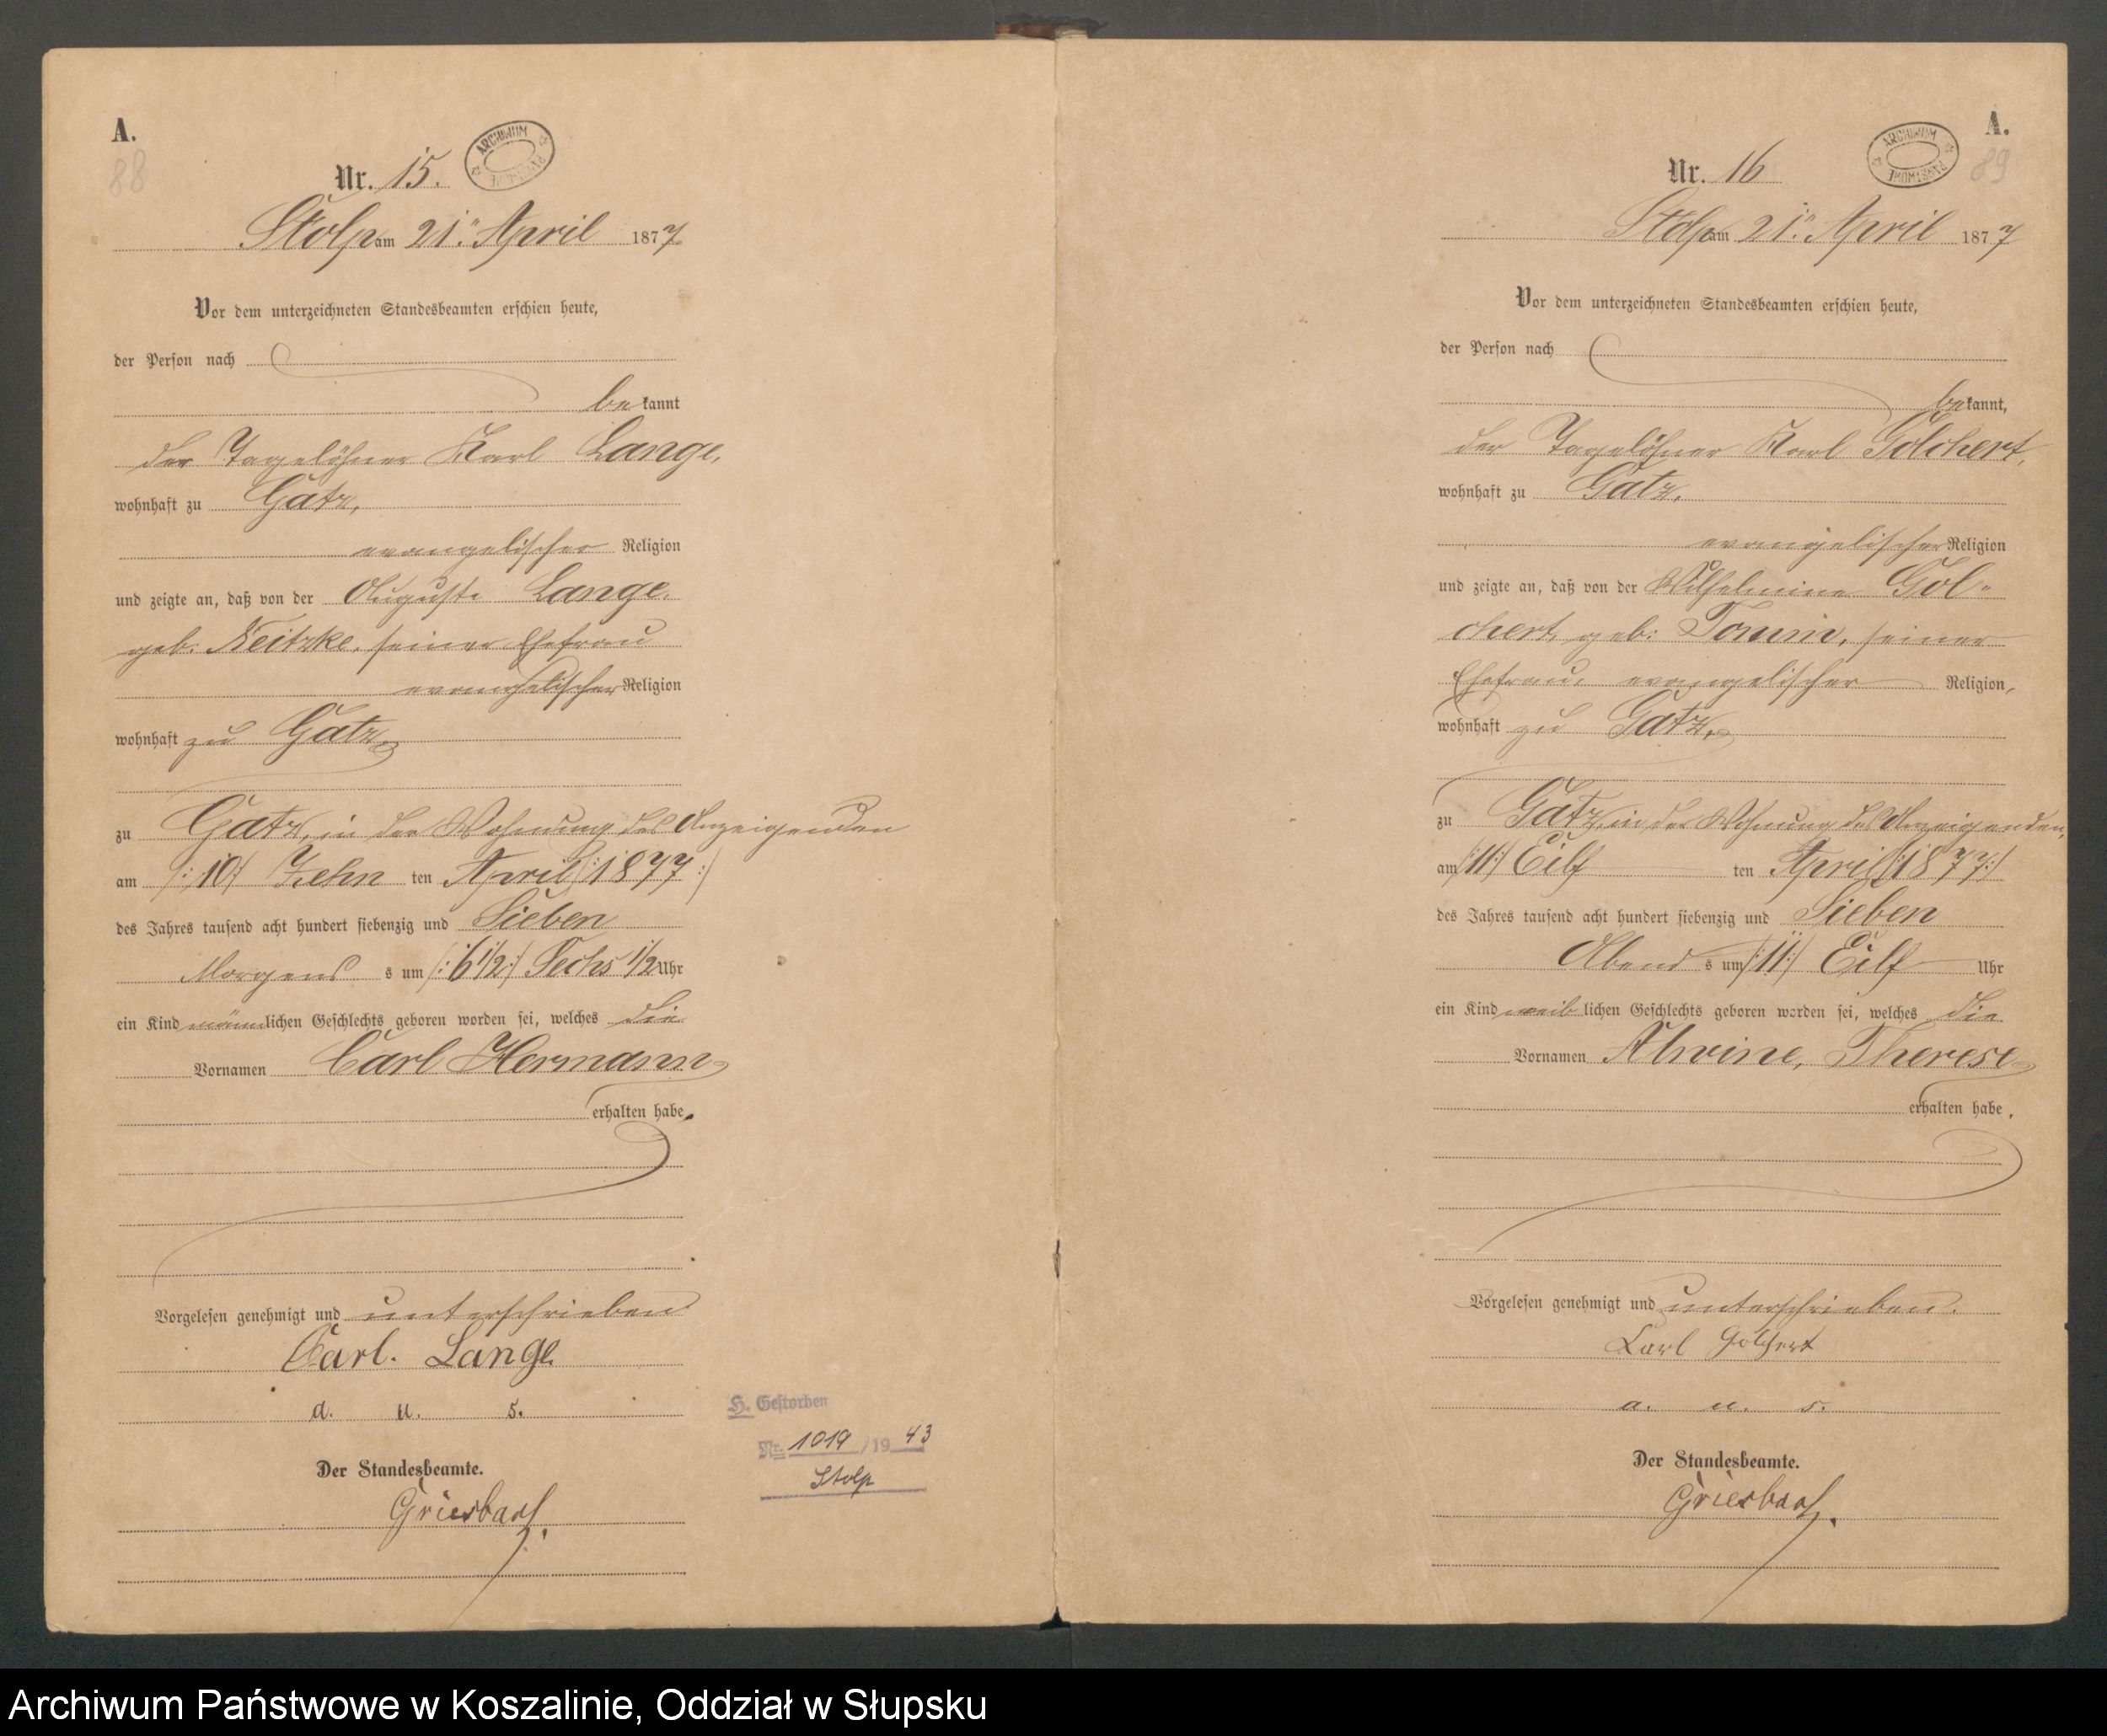 A.
88
Nr. 15.
ARCHIWUM
Stolp am 21. April 1877.
Vor dem unterzeichneten Standesbeamten erschien heute,
der Person nach
bekannt
der Tagelöhner Karl Lange,
wohnhaft zu Gatz,
evangelischer Religion
und zeigte an, daß von der Auguste Lange
geb. Neitzke, seiner Ehefrau
evangelischer Religion
wohnhaft zu Gatz,
zu Gatz, in der Wohnung des Anzeigenden
am /:10:/ Zehn ten April /:1877:/
des Jahres tausend acht hundert siebenzig und Sieben
Morgens s um /:6 1/2:/ Sechs 1/2 Uhr
ein Kind männlichen Geschlechts geboren worden sei, welches die
Vornamen Carl Hermann
erhalten habe.
Vorgelesen genehmigt und unterschrieben
Carl. Lange
d. u. s.
Der Standesbeamte.
Griesbach.
H. Gestorben
Nr. 1019/1943
Stolp
A.
89
Nr. 16
ARCHIWUM PAŃSTWOWE
Stolp am 21. April 1877
Vor dem unterzeichneten Standesbeamten erschien heute,
der Person nach
bekannt,
der Tagelöhner Karl Golchert,
wohnhaft zu Gatz,
evangelischer Religion
und zeigte an, daß von der Wilhelmine Gol-
chert, geb: seiner
Ehefrau, evangelischer Religion,
wohnhaft zu Gatz,
zu Gatz, in der Wohnung des Anzeigenden,
am /:11:/ Eilf ten April /:1877:/
des Jahres tausend acht hundert siebenzig und Sieben
Abend s um /:11:/ Eilf Uhr
ein Kind weiblichen Geschlechts geboren worden sei, welches die
Vornamen Alwine, Therese
erhalten habe.
Vorgelesen genehmigt und unterschrieben.
Karl Golchert
a. u. s.
Der Standesbeamte.
Griesbach.
Archiwum Państwowe w Koszalinie, Oddział w Słupsku